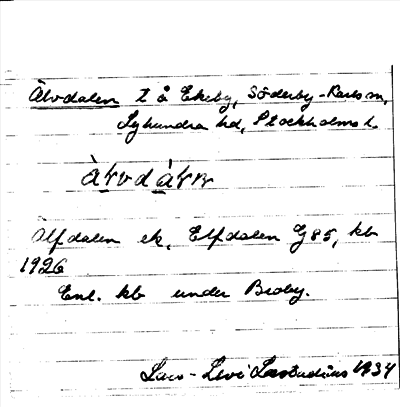 Älvdalen t å Ekeby, Söderby-Karls sn,
Lyhundra hd, Stockholms l.
Älfdalen ek, Elfdalen G85, kb
1926
Enl. kb under Broby.
Lars-Levi Læstadius 1934